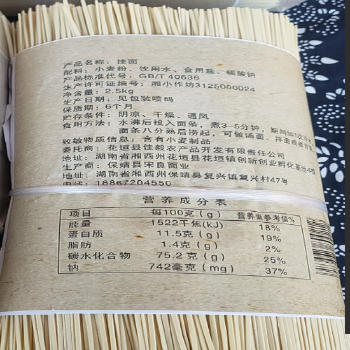 产品名称：挂面
配料：小麦粉、饮用水、食用盐、碳酸钠
产品标准代号：GB/T 40636
生产许可证编号：湘小作坊3125000024
净含量：2.5kg
生产日期：见包装喷码
保质期：6个月
贮存条件：阴凉、干燥、通风
食用方法：水沸后找入面条，煮3-5分钟，
面条八分熟后捞起，可做汤面
致敏物质信息：含有小麦制品
地址：湖南省湘西州花垣县花垣镇创新创业孵化茶仓2栋
生产商：保靖县宋良面业
地址：湖南省湘西州保靖县复兴镇复兴村47号
电话：18867204550
营养成分表
项目 每100克(g) 营养素参考值%
能量 1522千焦(KJ) 18%
蛋白质 11.5克(g) 19%
脂肪 1.4克(g) 2%
碳水化合物 75.2克(g) 25%
钠 742毫克(mg) 37%